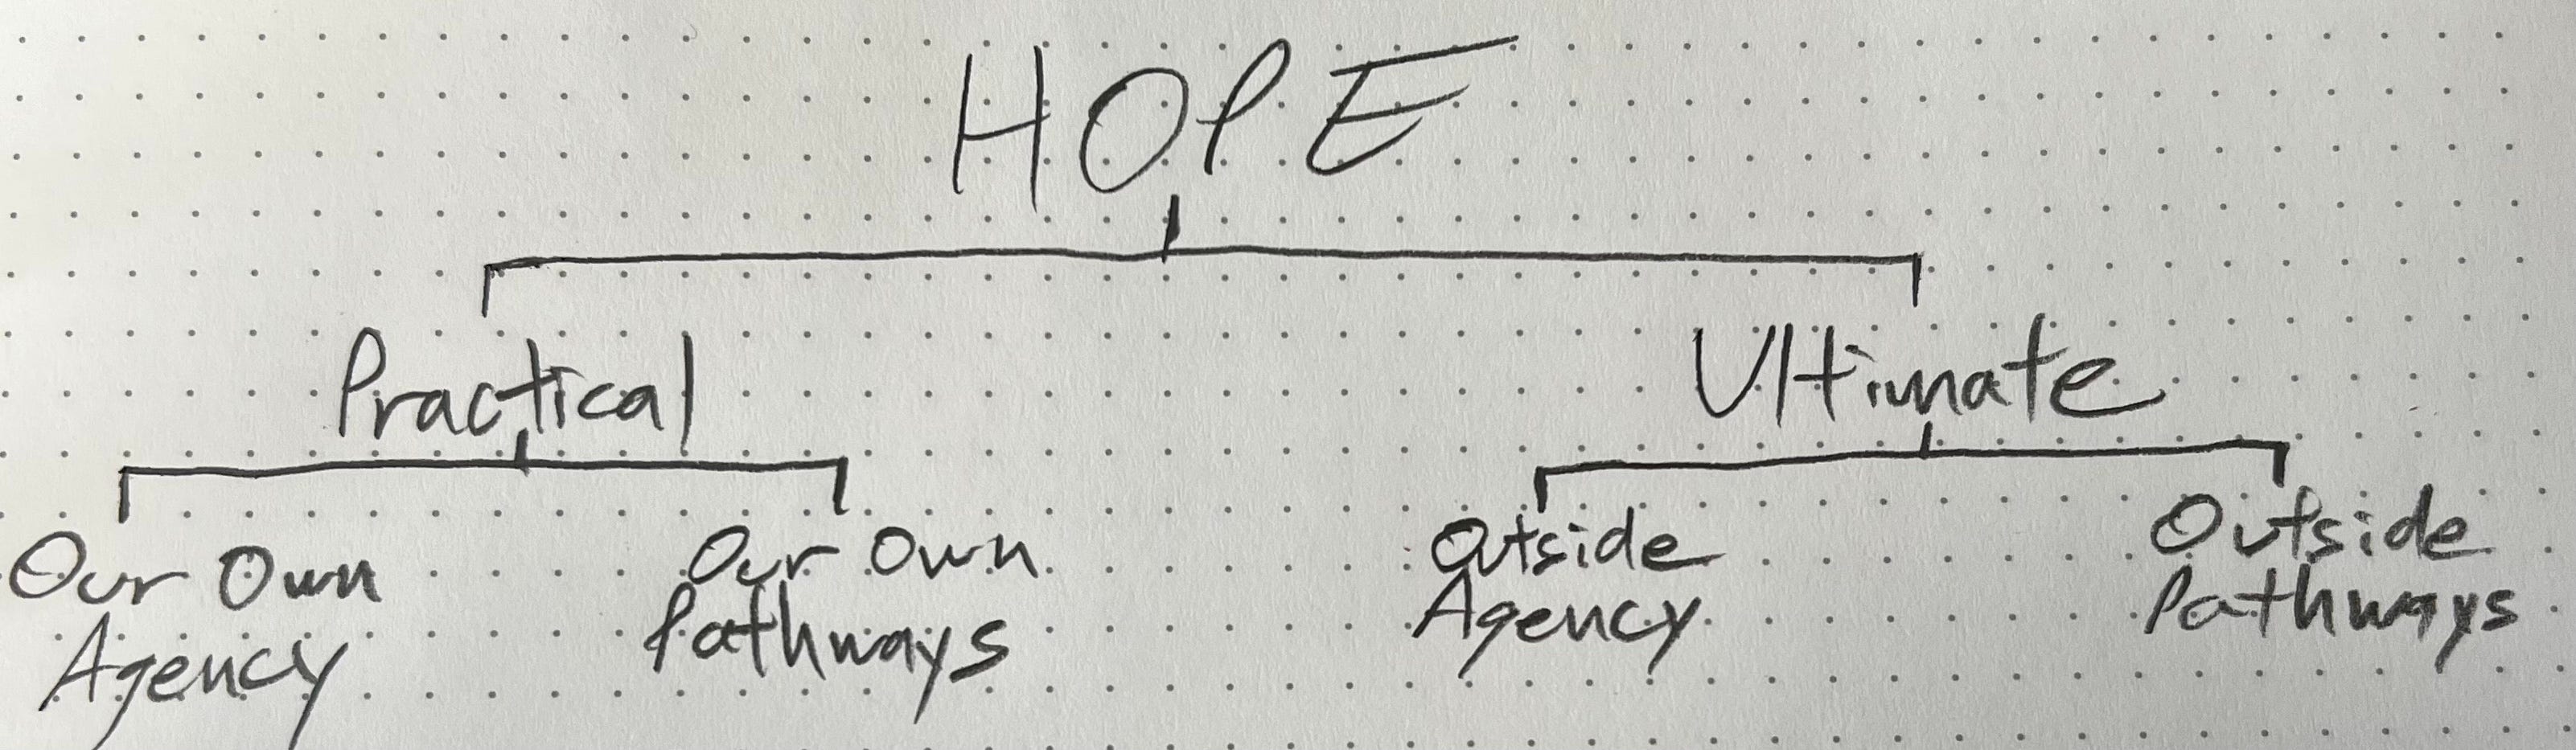 HOPE
Practical
Ultimate
Our Own
Agency
Our Own
Pathways
Outside
Agency
Outside
Pathways